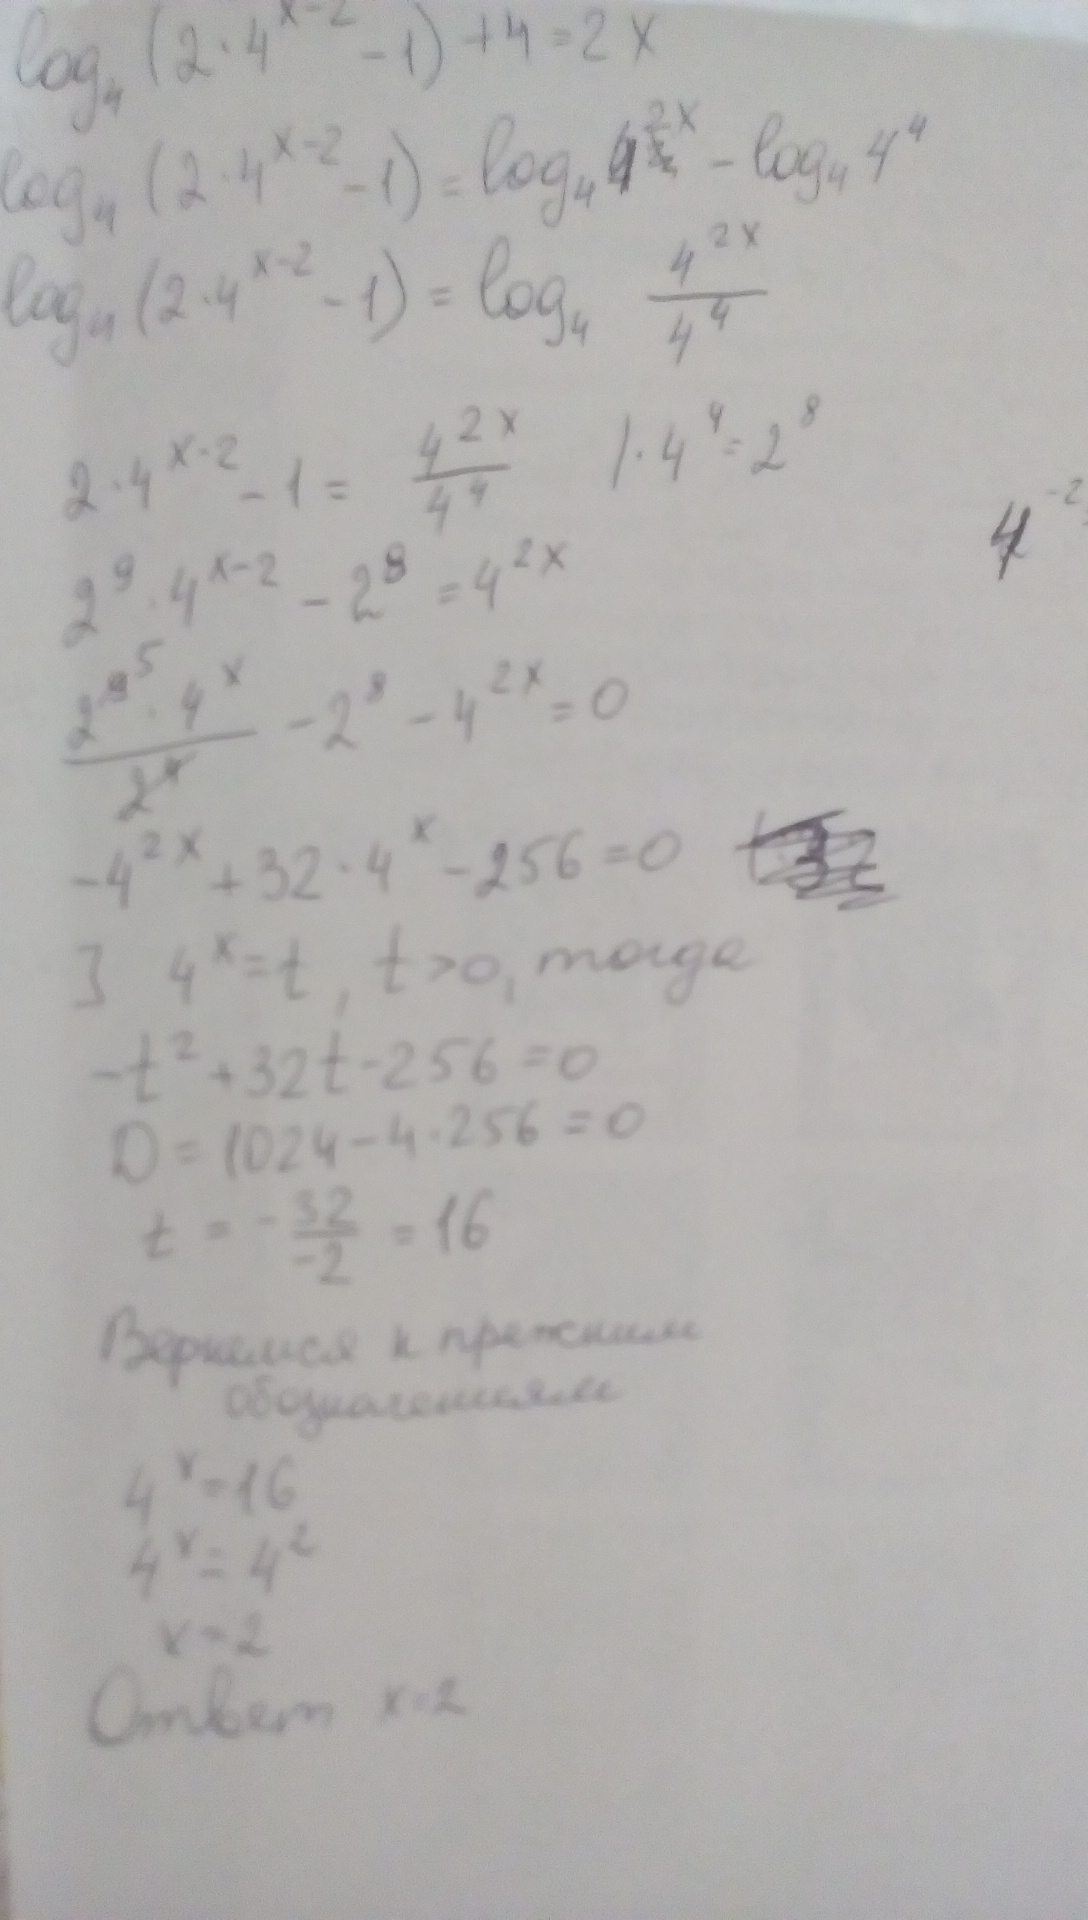 log₄ (2·4^(x-2) - 1) + 4 = 2x
log₄ (2·4^(x-2) - 1) = log₄ 4^(2x) - log₄ 4⁴
log₄ (2·4^(x-2) - 1) = log₄ 4^(2x)/4⁴
2·4^(x-2) - 1 = 4^(2x)/4⁴ |·4⁴ = 2⁸
4^(-2)
2⁹·4^(x-2) - 2⁸ = 4^(2x)
2⁹ ⁵·4^x/2⁴ - 2⁸ - 4^(2x) = 0
-4^(2x) + 32·4^x - 256 = 0
] 4^x = t, t > 0, тогда
-t² + 32t - 256 = 0
D = 1024 - 4·256 = 0
t = - 32/-2 = 16
Вернемся к прежним
обозначениям
4^x = 16
4^x = 4²
x = 2
Ответ x = 2